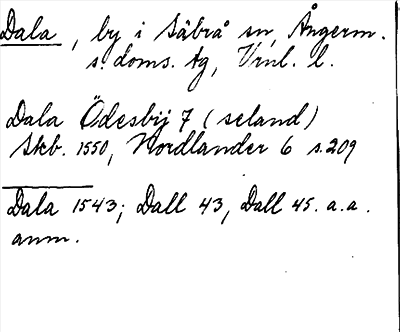 Dala, by i Säbrå sn, Ångerm.
s. doms. tg, Vnl. l.
Dala Ödesbÿ 7 (seland)
Skb. 1550, Nordlander 6 s. 209
Dala 1543; Dall 43, Dall 45. a.a.
anm.